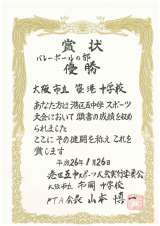 賞状
バレーボールの部
優勝
大阪市立 築港中学校
あなた方は港区立中学スポーツ
大会において頭書の成績を収め
られました
ここにその健闘を称えこれを
賞します
平成26年1月26日
港区立中スポーツ大会実行委員会
大阪市立 市岡中学校
PTA会長 山本博一